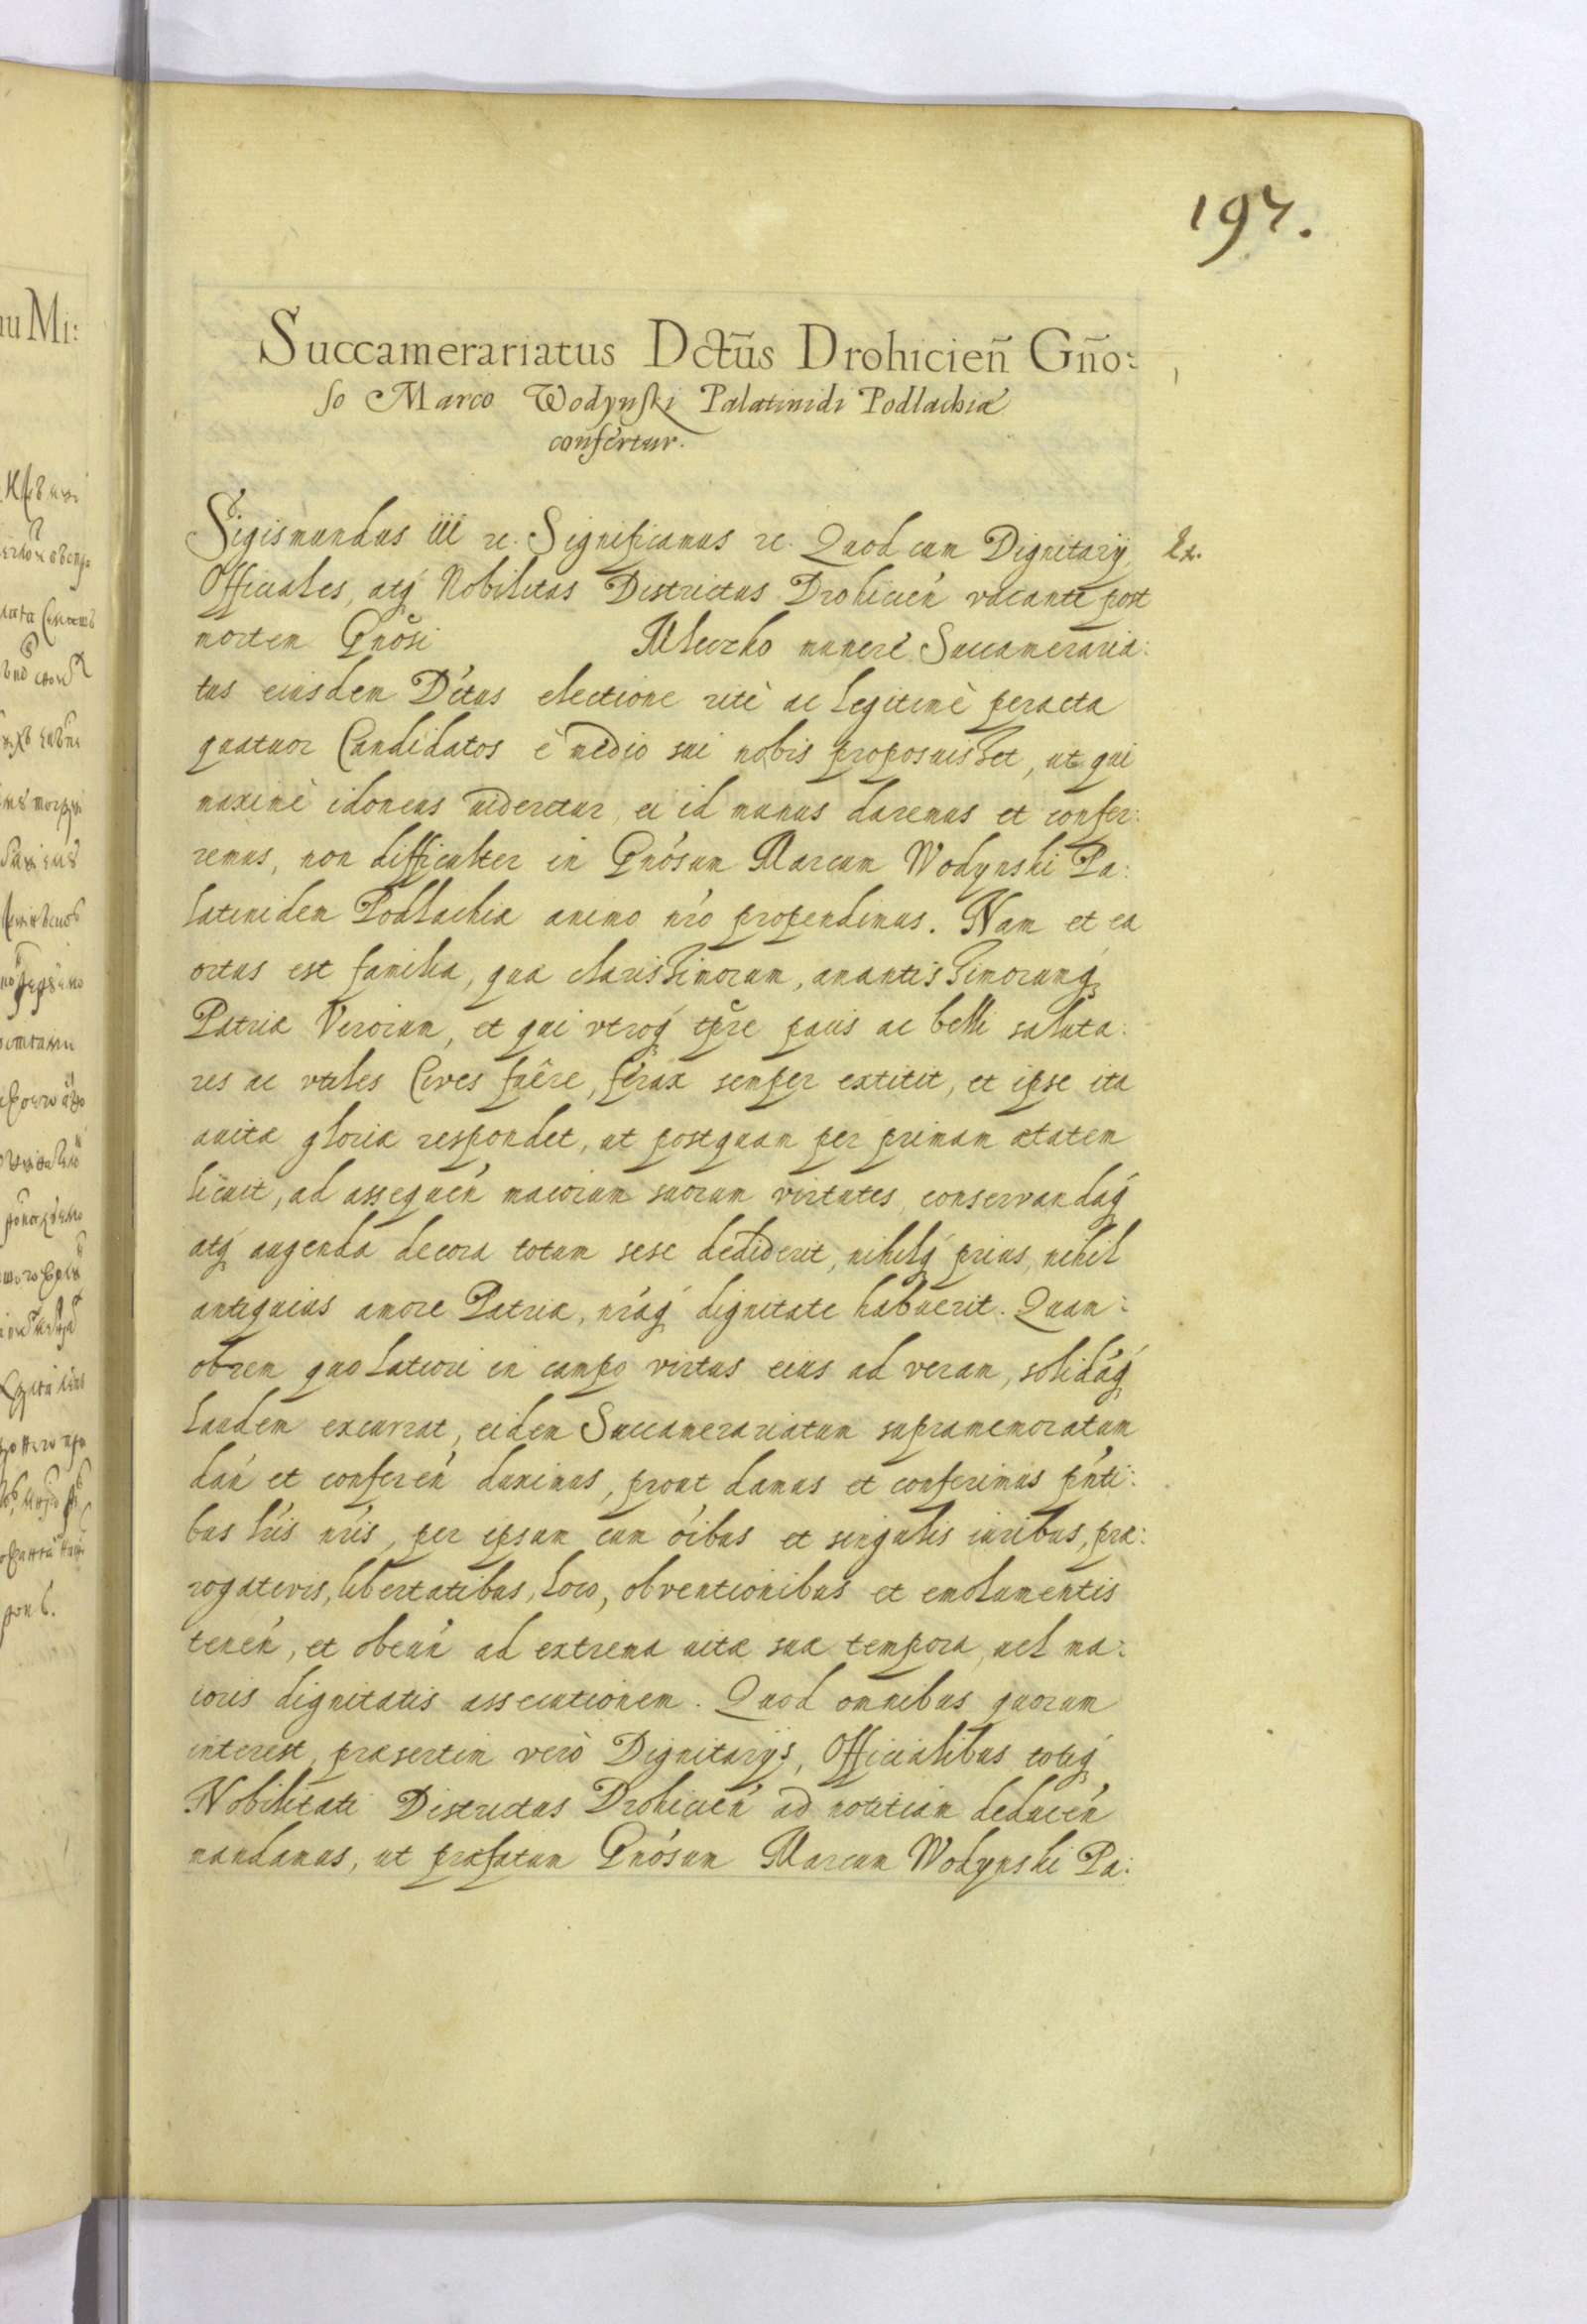 197.
Succamerariatus Dctũs Drohicień Gño:
so Marco Wodynski Palatinidi Podlachiæ
confertur.
Sigismundus iii rc. Significamus rc. Quod cum Dignitarij,
Officiales, atq́ Nobilitas Districtus Drohicień vacante post
mortem Gnõsi Mleczko munere Succameraria:
tus eiusdem D'ctus electione ritè ac legitimè peracta
quatuor Candidatos è medio sui nobis proposuisset, ut qui
maximè idoneus uideretur, ei id munus daremus et confer:
remus, non difficulter in Gnósum Marcum Wodynski Pa:
latinidem Podlachiæ animo nró propendimus. Nam et ea
ortus est familia, quæ clarissimorum, amantissimorumq́
Patriæ Virorum, et qui vtroq́ tp̃re pacis ac belli saluta:
res ac vtiles Cives fuêre, ferax semper extitit, et ipse ita
auitæ gloriæ respondet, ut postquam per primam ætatem
licuit, ad assequeń maiorum suorum virtutes, conservandaq́
atq́ augenda decora totum sese dediderit, nihilq́ prius, nihil
antiquius amore Patriæ, nráq́ dignitate habuerit. Quam:
obrem quo latiori in campo virtus eius ad veram, solidáq́
laudem excurrat, eidem Succamerariatum supramemoratum
dań et confereń duximus, prout damus et conferimus pńti:
bus lrís nrís, per ipsum cum óibus et singulis iuribus, præ:
rogativis, libertatibus, loco, obventionibus et emolumentis
teneń, et obeuń ad extrema uitæ suæ tempora, uel ma:
ioris dignitatis assecutionem. Quod omnibus quorum
interest, præsertim verò Dignitarijs, Officialibus totiq́
Nobilitati Districtus Drohicień ad notitiam deduceń
mandamus, ut præfatum Gnósum Marcum Wodynski Pa: